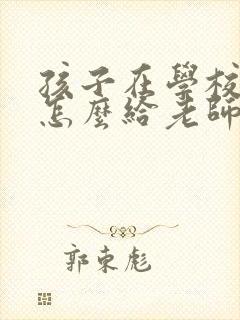 孩子在學校
怎麼給老師
郭東彪